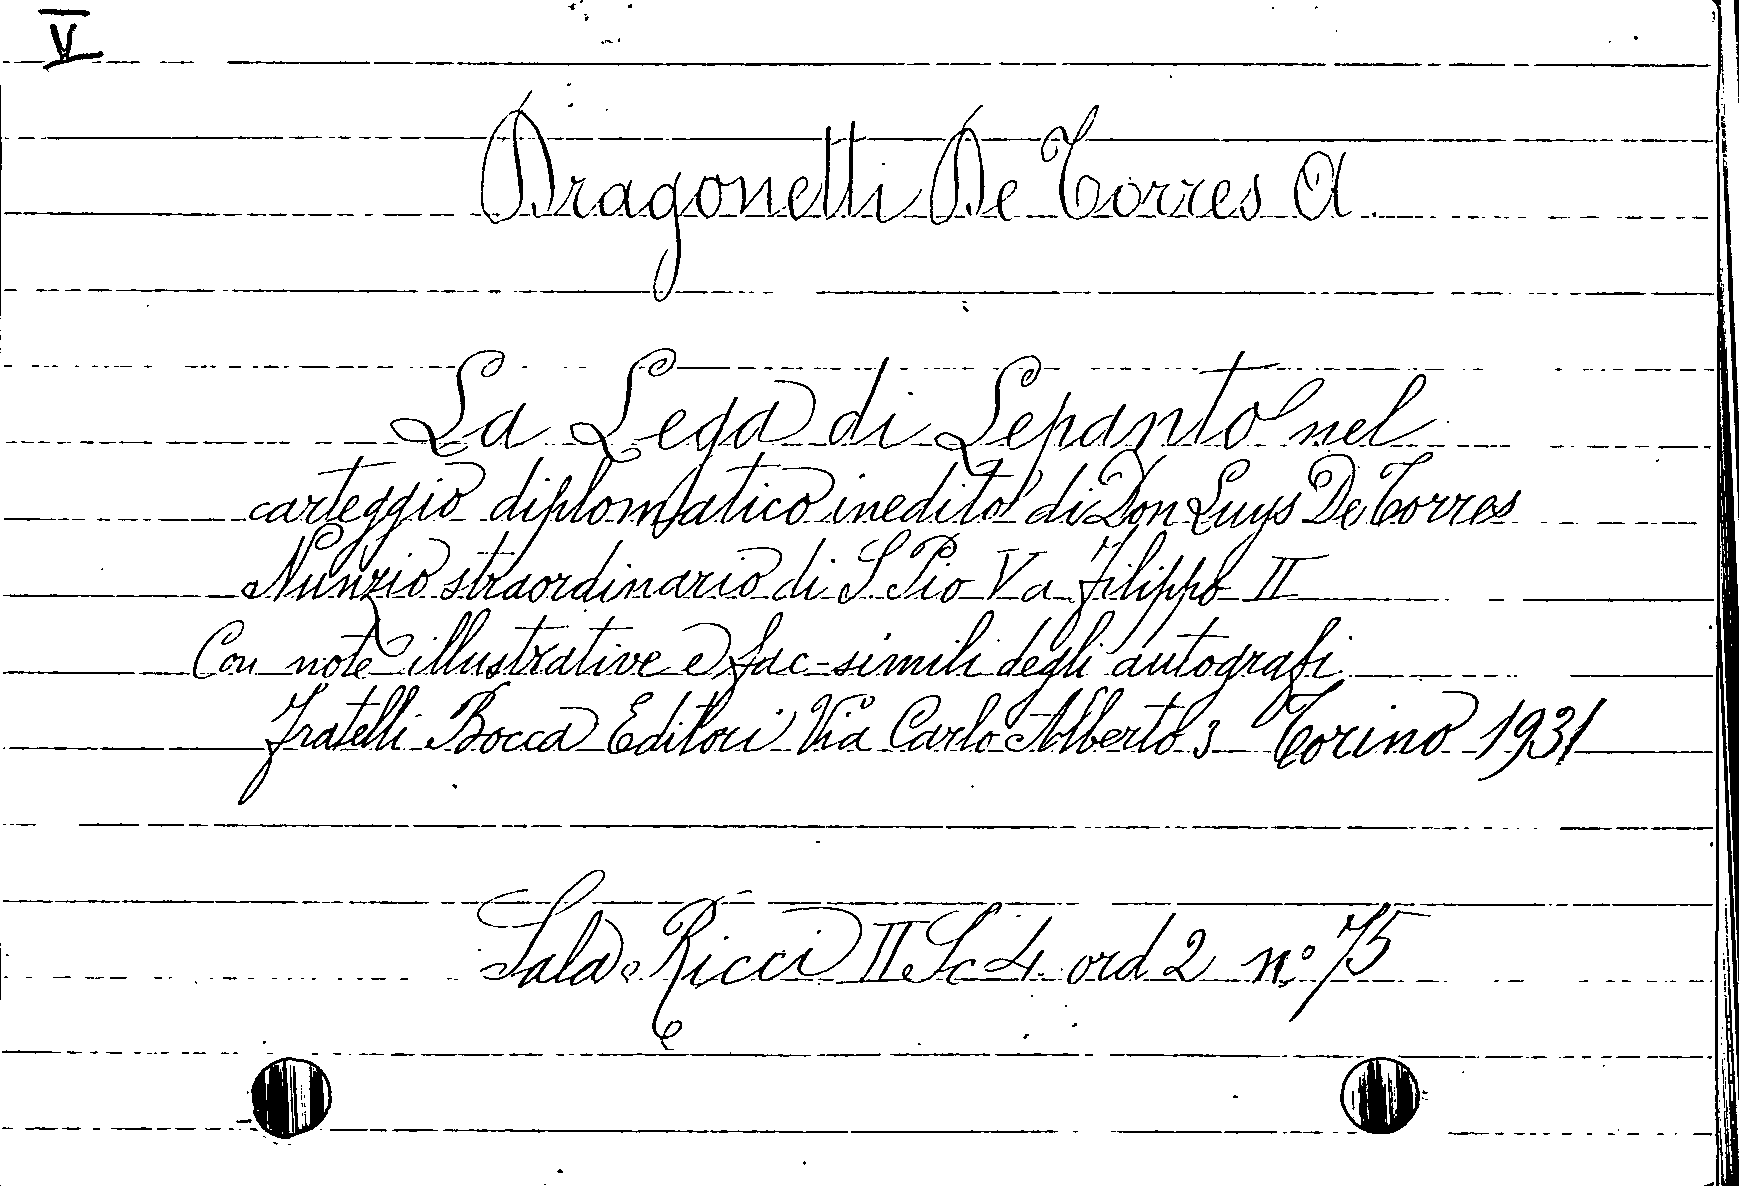 V
Dragonetti De Torres A
La Lega di Lepanto nel
carteggio diplomatico inedito di Don Luys De Torres
Nunzio straordinario di S Pio V a Filippo II
Con note illustrative e fac-simili degli autografi
Fratelli Bocca Editori Via Carlo Alberto 3 Torino 1931
Sala Ricci II Sc 4 ord 2 nº 75